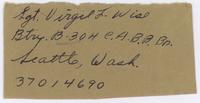 Sgt. Virgil L. Wise
Btry. B-304 C.A.B.B.Bn.
Seattle, Wash.
37014690